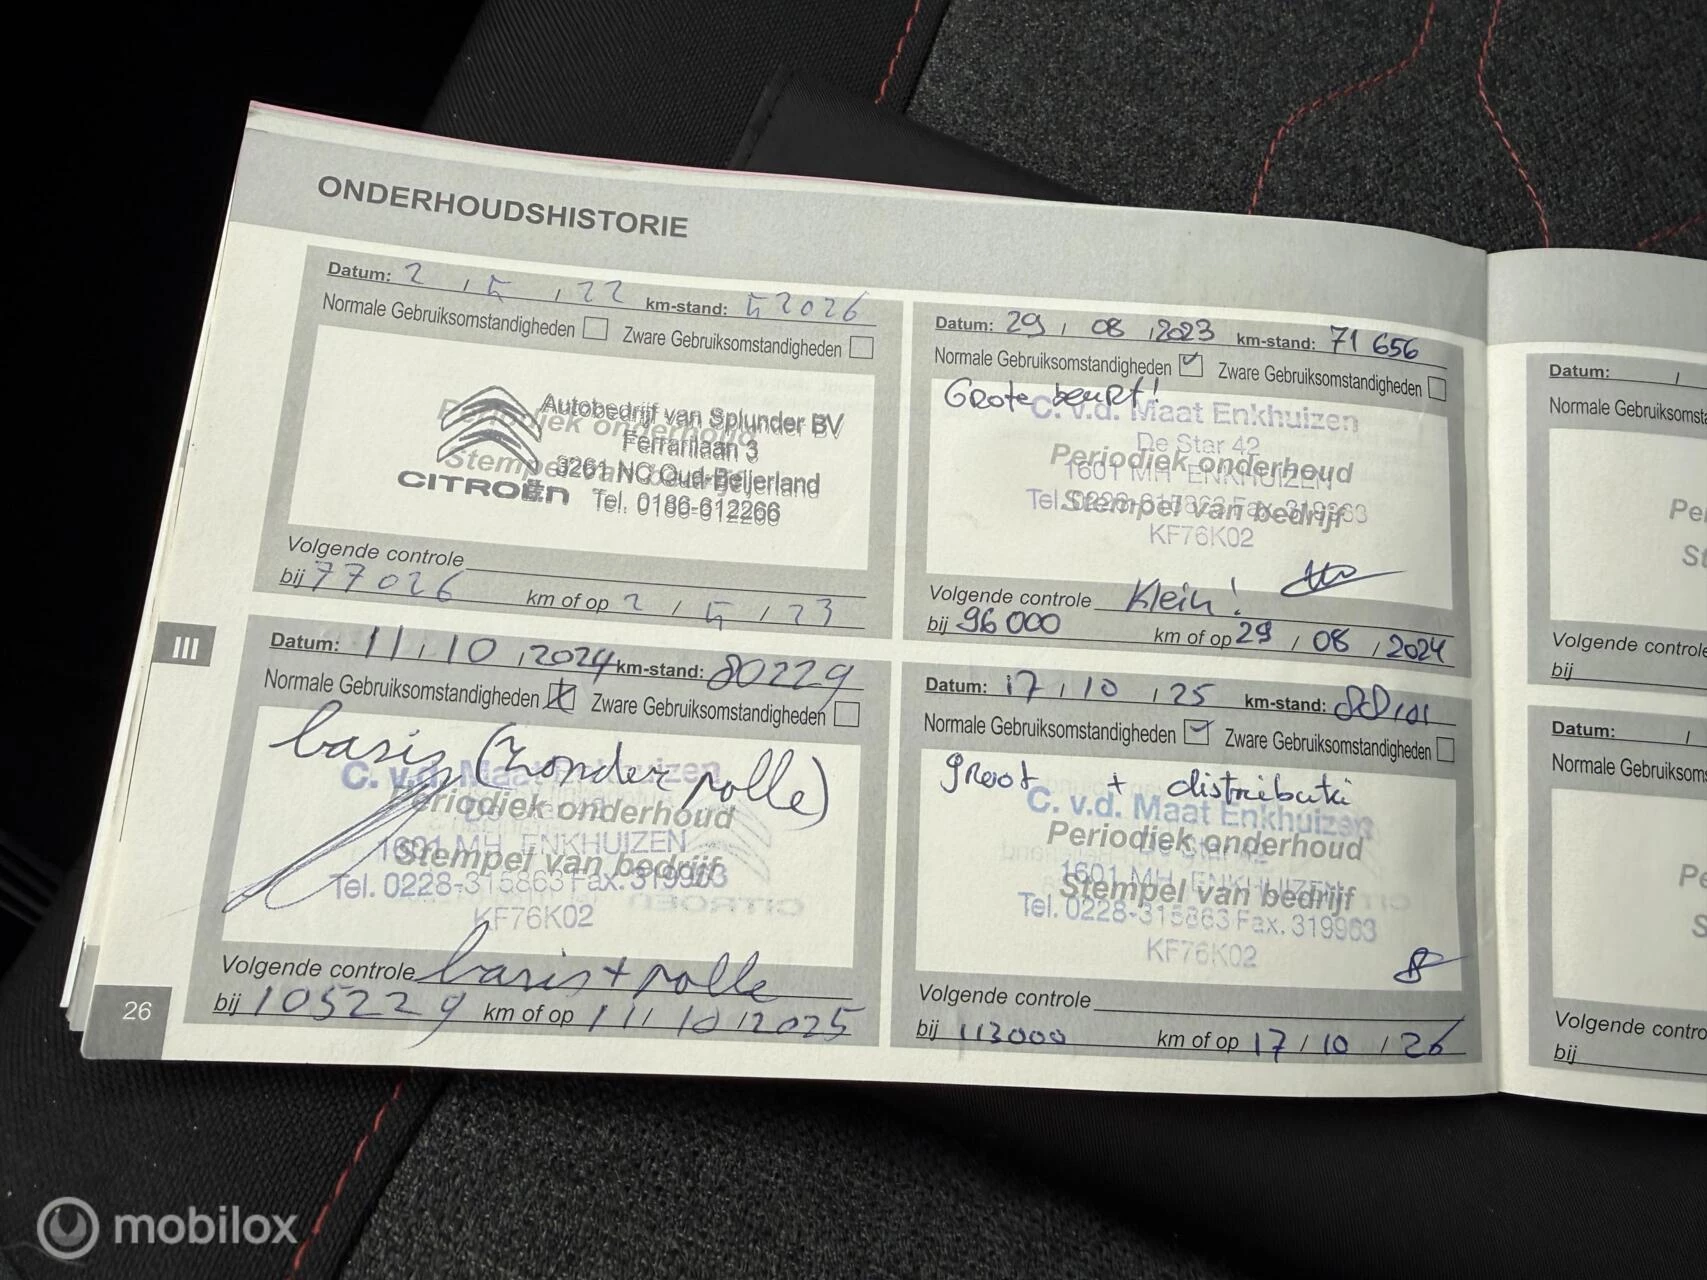 ONDERHOUDSHISTORIE
Datum: 2 / 5 / 22 km-stand: 52026
Normale Gebruiksomstandigheden Zware Gebruiksomstandigheden
Periodiek onderhoud
Stempel van bedrijf
Autobedrijf van Splunder BV
Ferrarilaan 3
3261 NC Oud-Beijerland
CITROËN Tel. 0186-612266
Volgende controle
bij 77026 km of op 2 / 5 / 23
Datum: 29 / 08 / 2023 km-stand: 71 656
Normale Gebruiksomstandigheden Zware Gebruiksomstandigheden
Grote beurt!
C. v.d. Maat Enkhuizen
De Star 42
Periodiek onderhoud
1601 MH ENKHUIZEN
Stempel van bedrijf
Tel. 0228-315863 Fax. 319963
KF76K02
Volgende controle Klein!
bij 96 000 km of op 29 / 08 / 2024
III
Datum: 11 / 10 / 2024 km-stand: 80229
Normale Gebruiksomstandigheden Zware Gebruiksomstandigheden
basis (zonder polle)
C. v.d. Maat Enkhuizen
Periodiek onderhoud
1601 MH ENKHUIZEN
Stempel van bedrijf
Tel. 0228-315863 Fax. 319963
KF76K02
Volgende controle basis + polle
bij 105229 km of op 11 / 10 / 2025
Datum: 17 / 10 / 25 km-stand:
Normale Gebruiksomstandigheden Zware Gebruiksomstandigheden
groot + distributie
C. v.d. Maat Enkhuizen
Periodiek onderhoud
1601 MH ENKHUIZEN
Stempel van bedrijf
Tel. 0228-315863 Fax. 319963
KF76K02
Volgende controle
bij 113000 km of op 17 / 10 / 26
26
Datum: /
Normale
Volgende controle
bij
Datum: /
Normale
Volgende
bij
mobilox